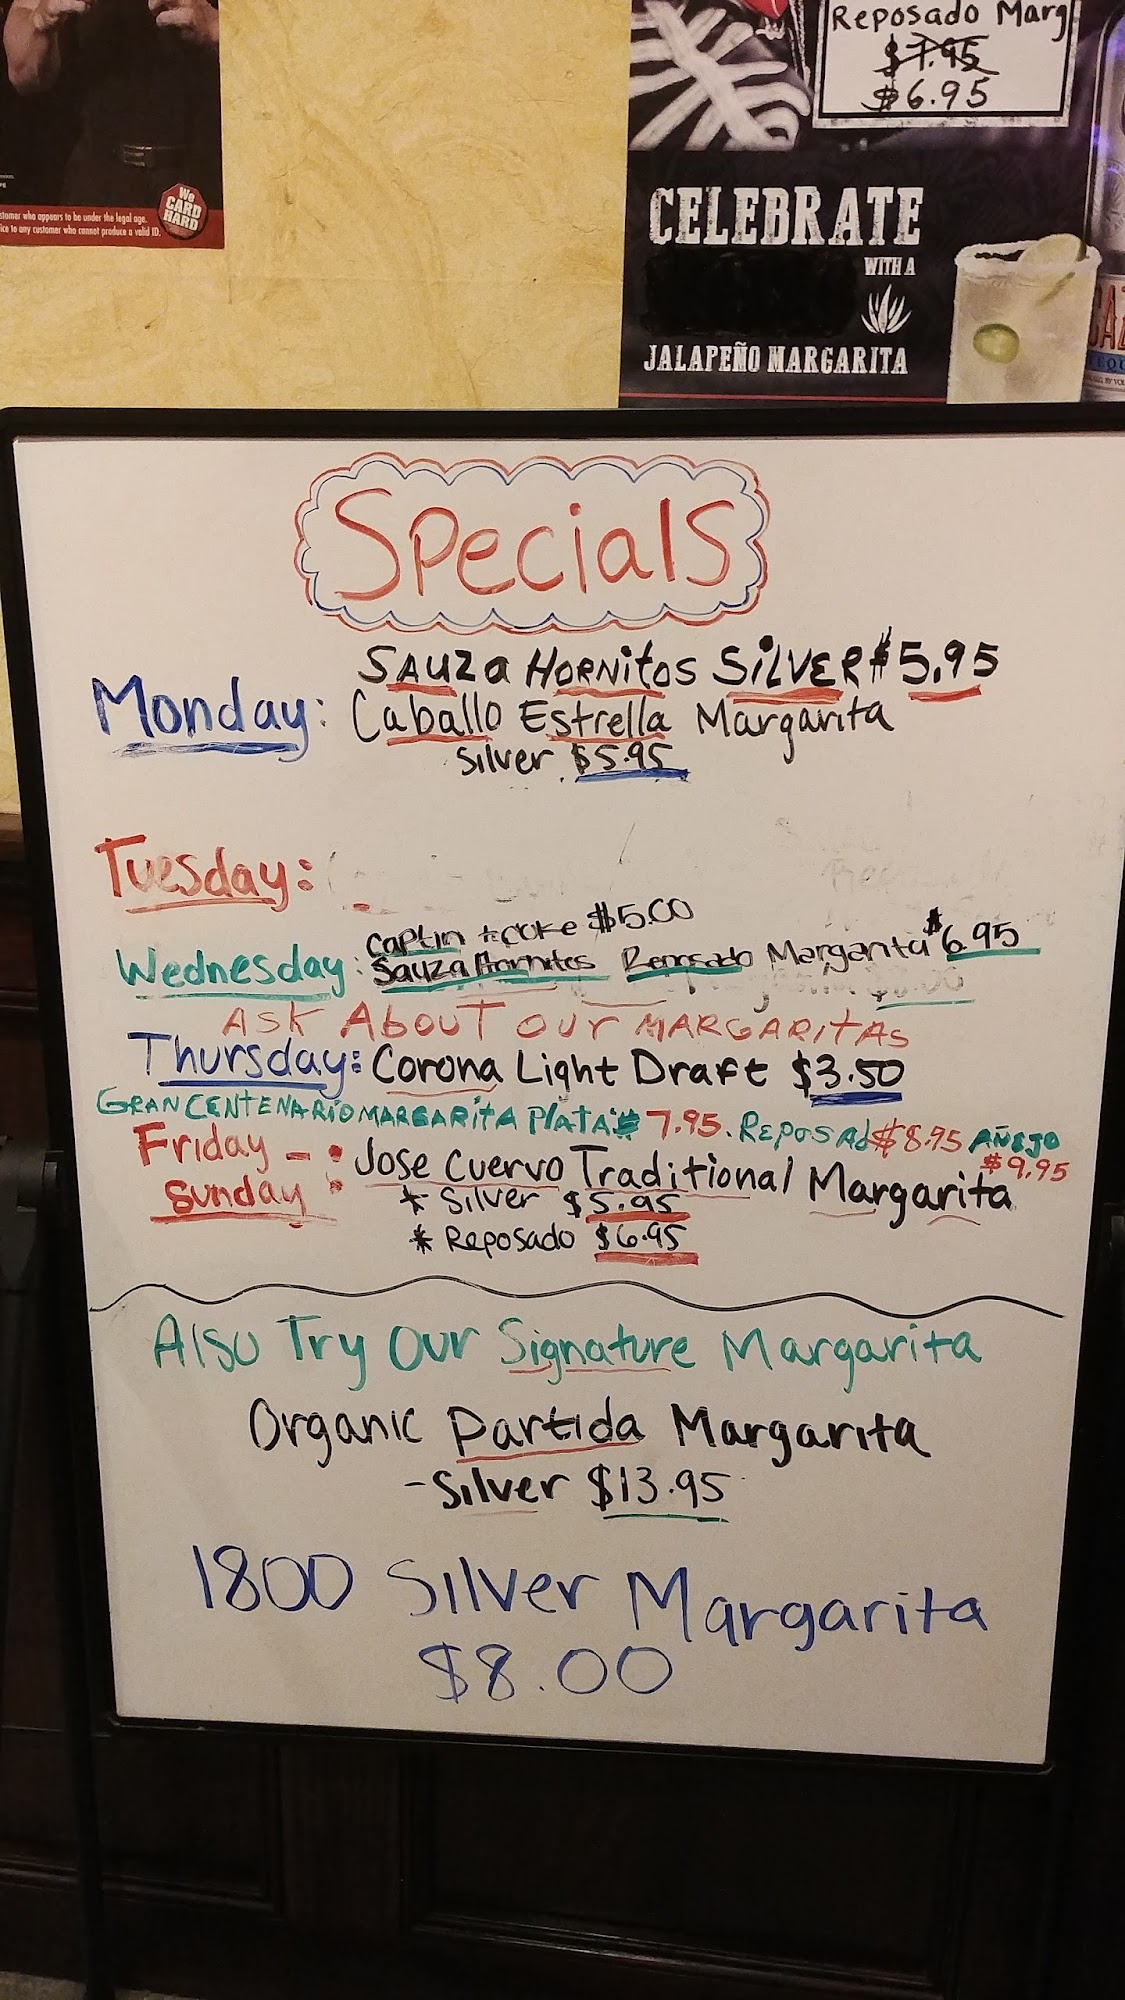 Reposado Marg
$7.95
$6.95
We
CARD
HARD
stomer who appears to be under the legal age.
ice to any customer who cannot produce a valid ID.
CELEBRATE
WITH A
JALAPEÑO MARGARITA
Specials
Sauza Hornitos Silver $5.95
Monday: Caballo Estrella Margarita
Silver $5.95
Tuesday:
Captin + coke $5.00
Wednesday: Sauza Hornitos Reposado Margarita $6.95
Ask About our Margaritas
Thursday: Corona Light Draft $3.50
Gran Centenario Margarita Plata $7.95. Reposad $8.95 Añejo $9.95
Friday - : Jose Cuervo Traditional Margarita
Sunday
* Silver $5.95
* Reposado $6.95
Also Try Our Signature Margarita
Organic Partida Margarita
-Silver $13.95
1800 Silver Margarita
$8.00